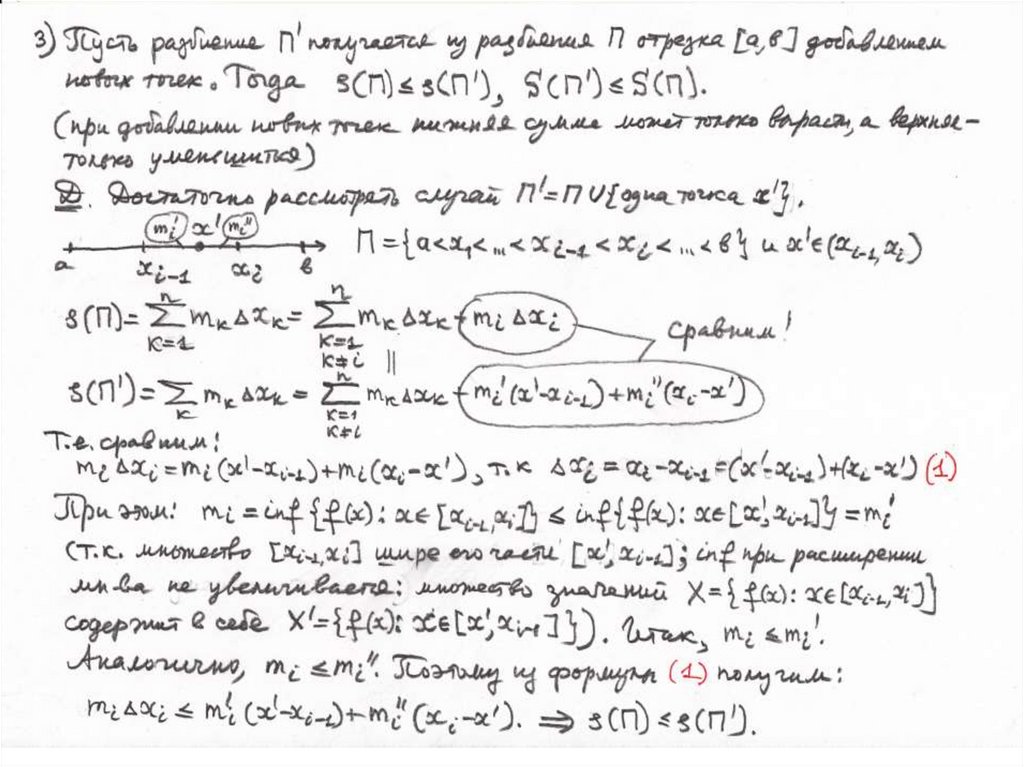 3) Пусть разбиение П' получается из разбиения П отрезка [a,b] добавлением
новых точек. Тогда s(П) ≤ s(П'), S(П') ≤ S(П).
(при добавлении новых точек нижняя сумма может только вырасти, а верхняя –
только уменьшиться)
Д. Достаточно рассмотреть случай П' = П ∪ {одна точка x'}.
m_i' x' m_i''
a x_{i-1} x_i b
П = {a < x_1 < ... < x_{i-1} < x_i < ... < b} и x' ∈ (x_{i-1}, x_i)
s(П) = ∑_{k=1}^{n} m_k Δx_k = ∑_{k=1, k≠i}^{n} m_k Δx_k + m_i Δx_i
сравним!
||
s(П') = ∑_k m_k Δx_k = ∑_{k=1, k≠i}^{n} m_k Δx_k + m_i'(x'-x_{i-1}) + m_i''(x_i-x')
Т.е. сравним!
m_i Δx_i = m_i(x'-x_{i-1}) + m_i(x_i-x'), т.к Δx_i = x_i - x_{i-1} = (x'-x_{i-1}) + (x_i-x') (1)
При этом: m_i = inf{f(x): x∈[x_{i-1}, x_i]} ≤ inf{f(x): x∈[x', x_{i-1}]} = m_i'
(т.к. множество [x_{i-1}, x_i] шире его части [x', x_{i-1}]; inf при расширении
мн-ва не увеличивается: множество значений X = {f(x): x∈[x_{i-1}, x_i]}
содержит в себе X' = {f(x): x∈[x', x_{i-1}]}). Итак, m_i ≤ m_i'.
Аналогично, m_i ≤ m_i''. Поэтому из формулы (1) получим:
m_i Δx_i ≤ m_i'(x'-x_{i-1}) + m_i''(x_i-x'). ⇒ s(П) ≤ s(П').